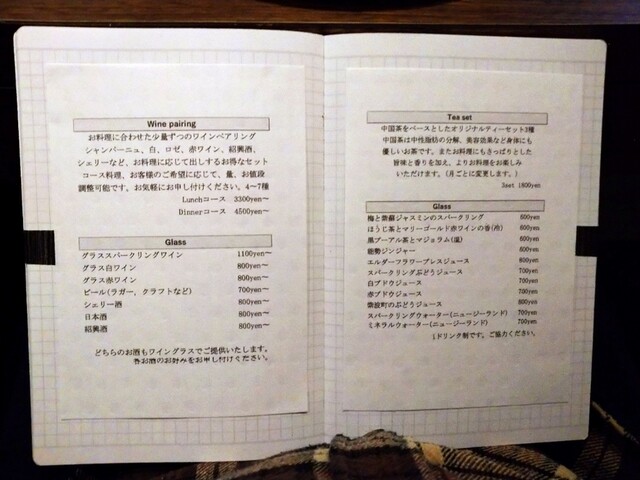 Wine pairing
お料理に合わせた少量ずつのワインペアリング
シャンパーニュ、白、ロゼ、赤ワイン、紹興酒、
シェリーなど、お料理に応じて出しするお得なセット
コース料理、お客様のご希望に応じて、量、お値段
調整可能です。お気軽にお申し付けください。4～7種
Lunchコース 3300yen～
Dinnerコース 4500yen～
Glass
グラススパークリングワイン 1100yen～
グラス白ワイン 800yen～
グラス赤ワイン 800yen～
ビール(ラガー、クラフトなど) 700yen～
シェリー酒 800yen～
日本酒 800yen～
紹興酒 800yen～
どちらのお酒もワイングラスでご提供いたします。
各お酒のお好みをお申し付けください。
Tea set
中国茶をベースとしたオリジナルティーセット3種
中国茶は中性脂肪の分解、美容効果など身体にも
優しいお茶です。またお料理にもさっぱりとした
旨味と香りを加え、よりお料理をお楽しみ
いただけます。(月ごとに変更します。)
3set 1800yen
Glass
梅と紫蘇ジャスミンのスパークリング 600yen
ほうじ茶とマリーゴールド赤ワインの香(冷) 600yen
黒プーアル茶とマジョラム(温) 600yen
能勢ジンジャー 600yen
エルダーフラワープレスジュース 800yen
スパークリングぶどうジュース 700yen
白ブドウジュース 700yen
赤ブドウジュース 700yen
紫波町のぶどうジュース 800yen
スパークリングウォーター(ニュージーランド) 700yen
ミネラルウォーター(ニュージーランド) 700yen
1ドリンク制です。ご協力ください。